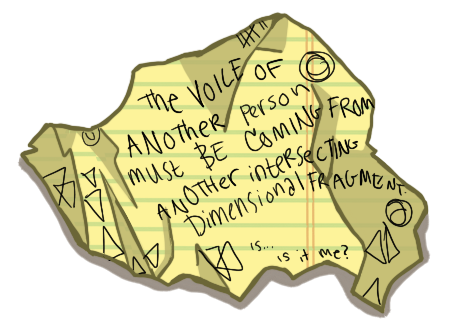 The VOICE OF
ANOTHER Person
must BE COMING FROM
ANOTher interSECTING
DimensionAl FRAGMENT.
is...
is it me?